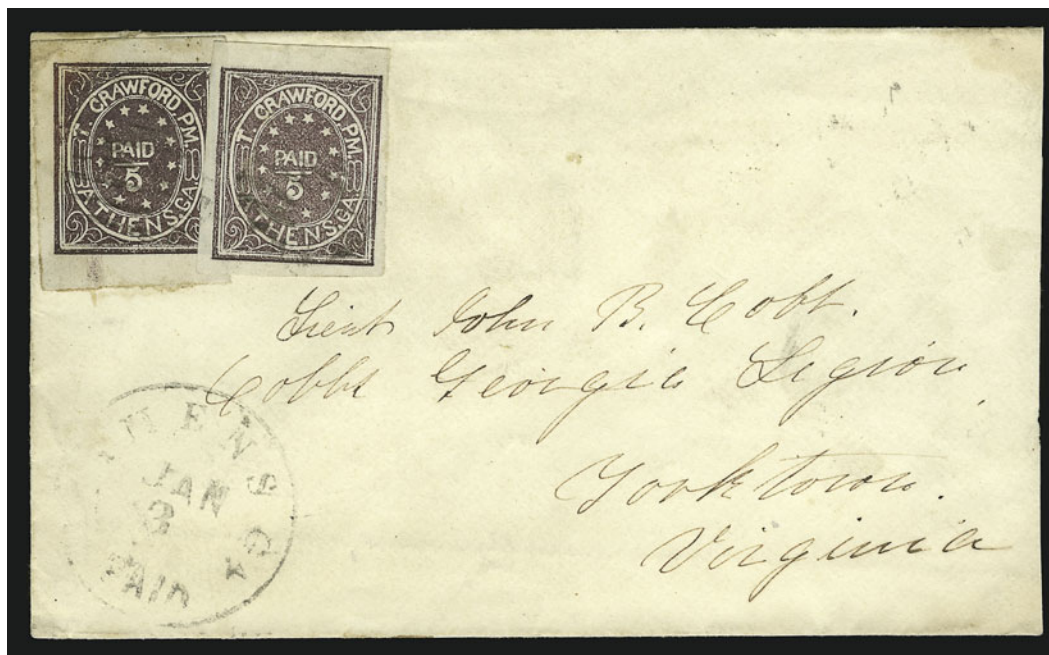 T. CRAWFORD, P.M.
PAID
5
ATHENS, GA.
T. CRAWFORD, P.M.
PAID
5
ATHENS, GA.
Lieut John B. Cobb.
Cobbs Georgia Legion,
Yorktown.
Virginia
ATHENS GA
JAN
3
PAID